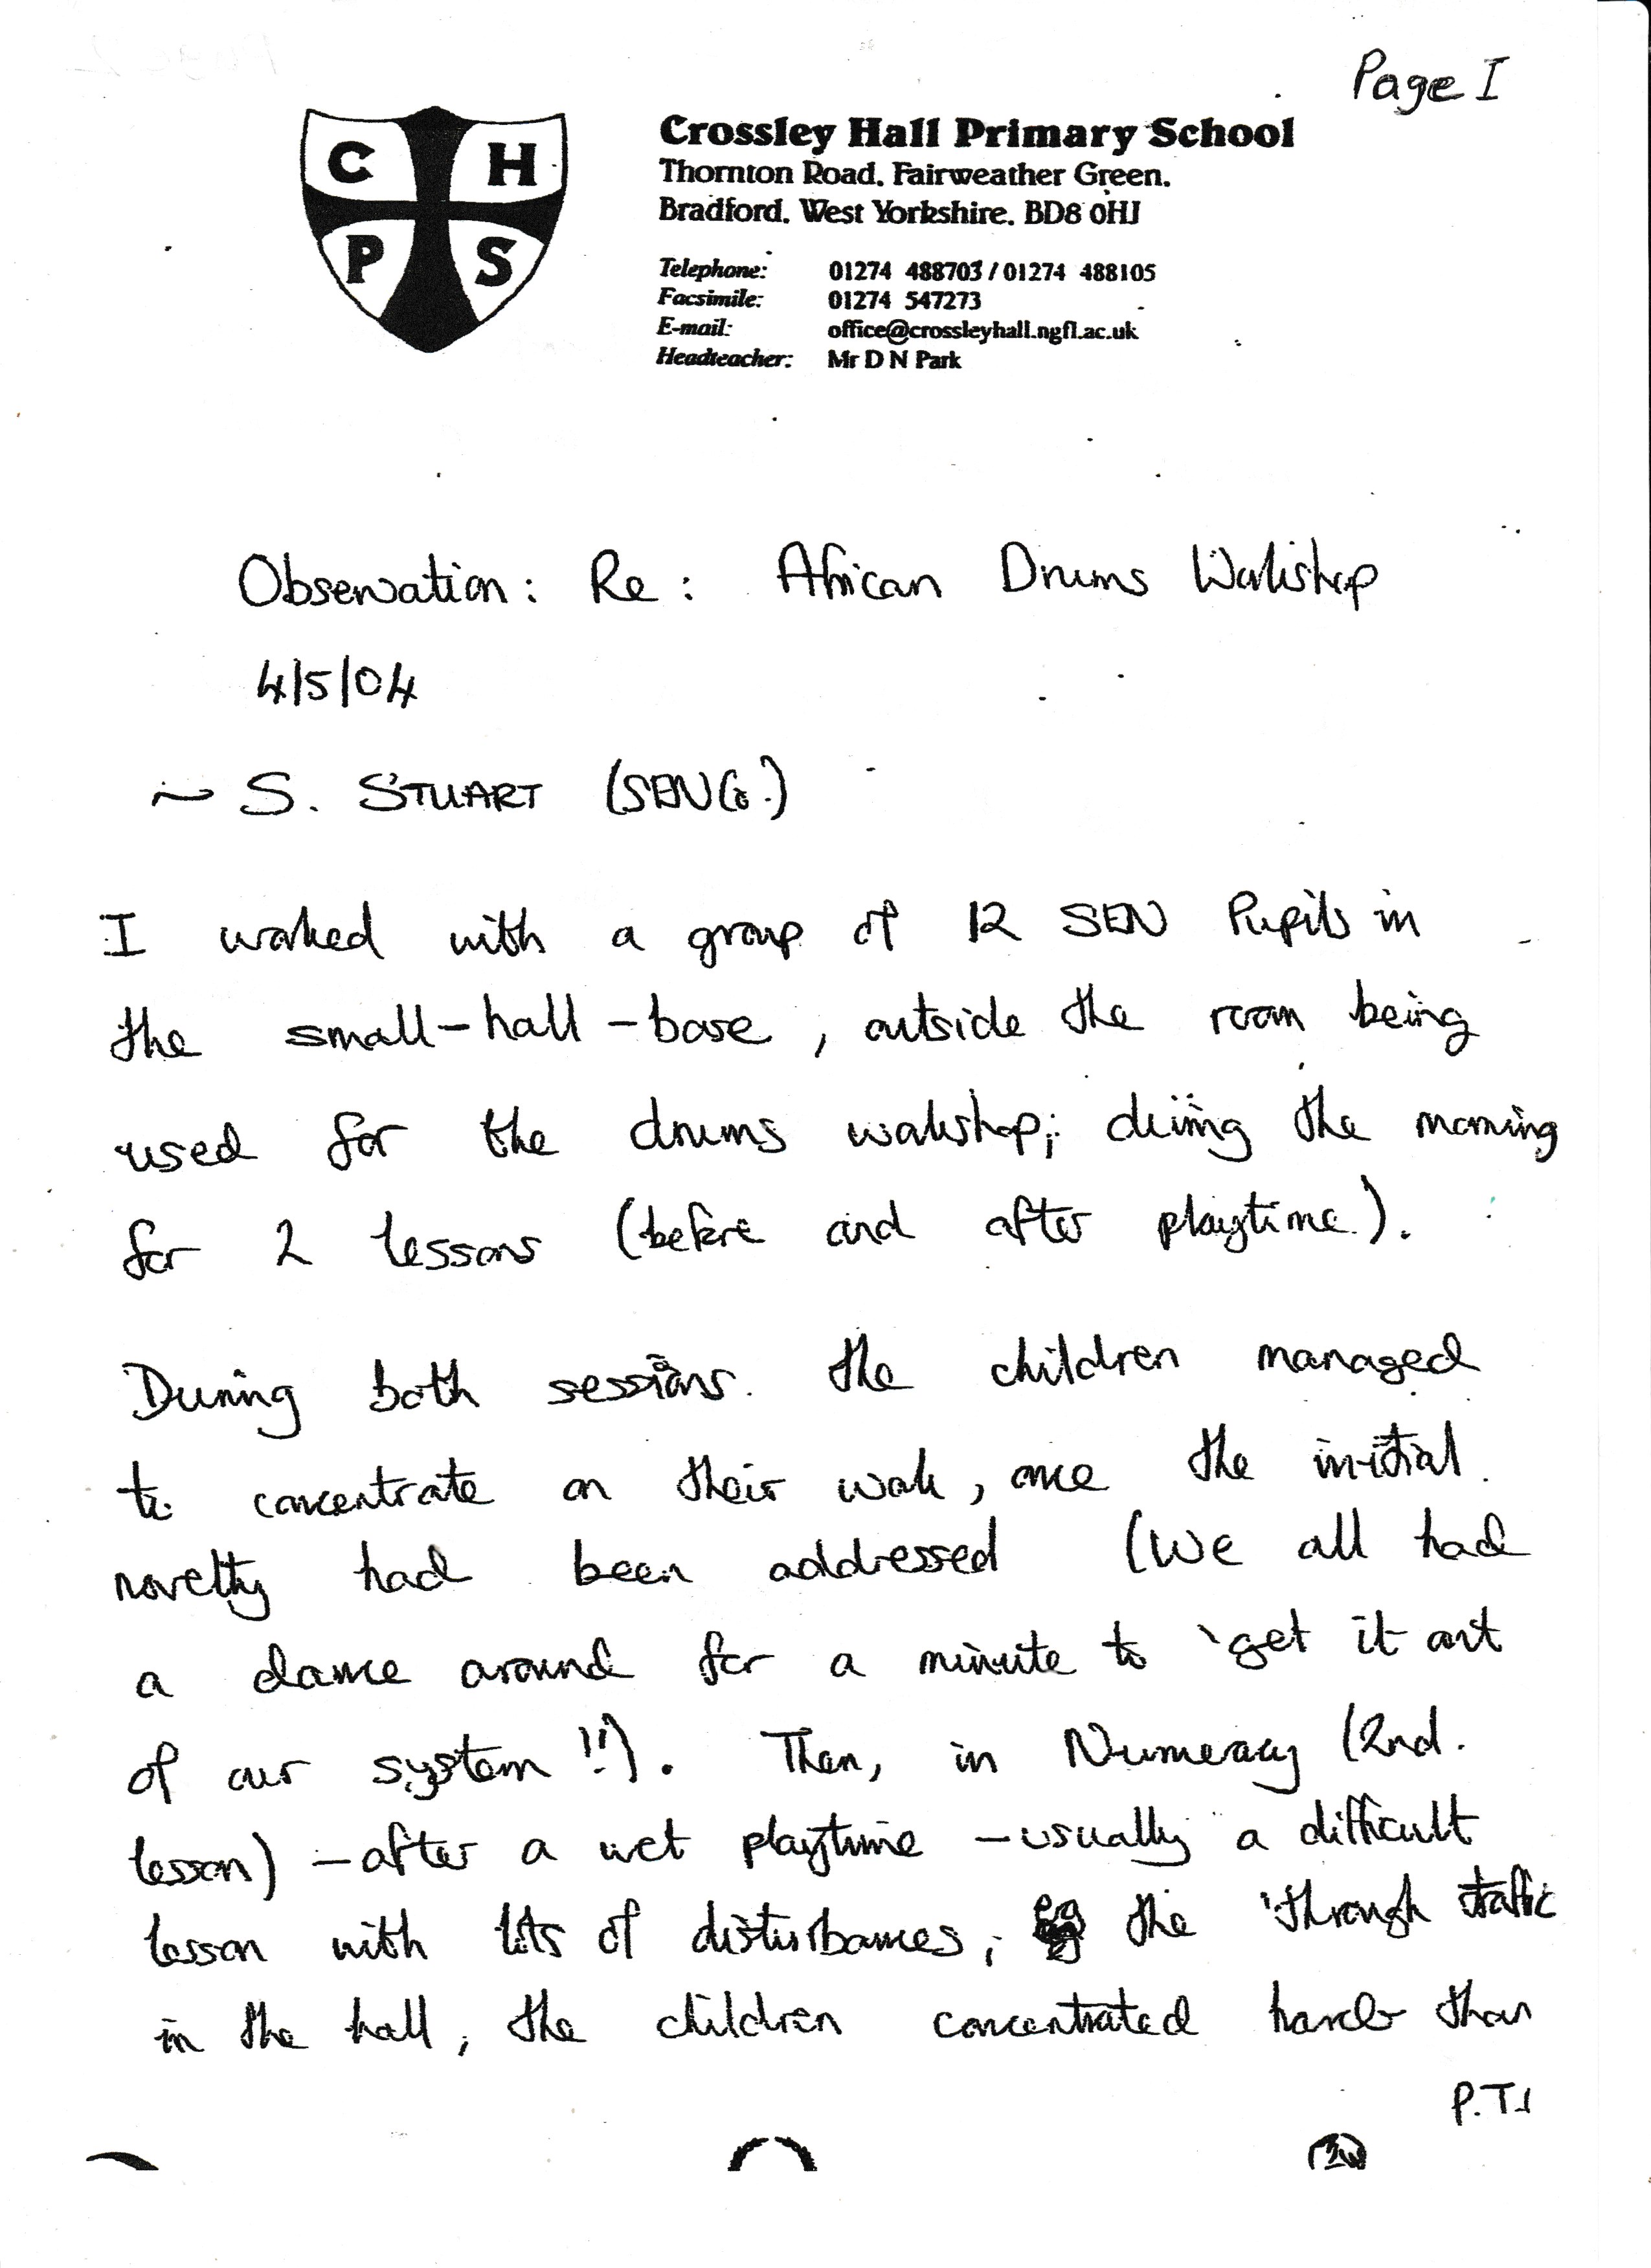 Page I
C H
P S
Crossley Hall Primary School
Thornton Road. Fairweather Green.
Bradford. West Yorkshire. BD8 0HJ
Telephone: 01274 488703 / 01274 488105
Facsimile: 01274 547273
E-mail: office@crossleyhall.ngfl.ac.uk
Headteacher: Mr D N Park
Observation: Re: African Drums Workshop
4/5/04
~ S. STUART (SENCo.)
I worked with a group of 12 SEN Pupils in
the small-hall-base, outside the room being
used for the drums workshop; during the morning
for 2 lessons (before and after playtime).
During both sessions. the children managed
to concentrate on their work, once the initial
novelty had been addressed (We all had
a dance around for a minute to 'get it out
of our system!!). Then, in Numeracy (2nd.
lesson) - after a wet playtime - usually a difficult
lesson with lots of disturbances, eg the 'through traffic
in the hall, the children concentrated harder than
P.T.